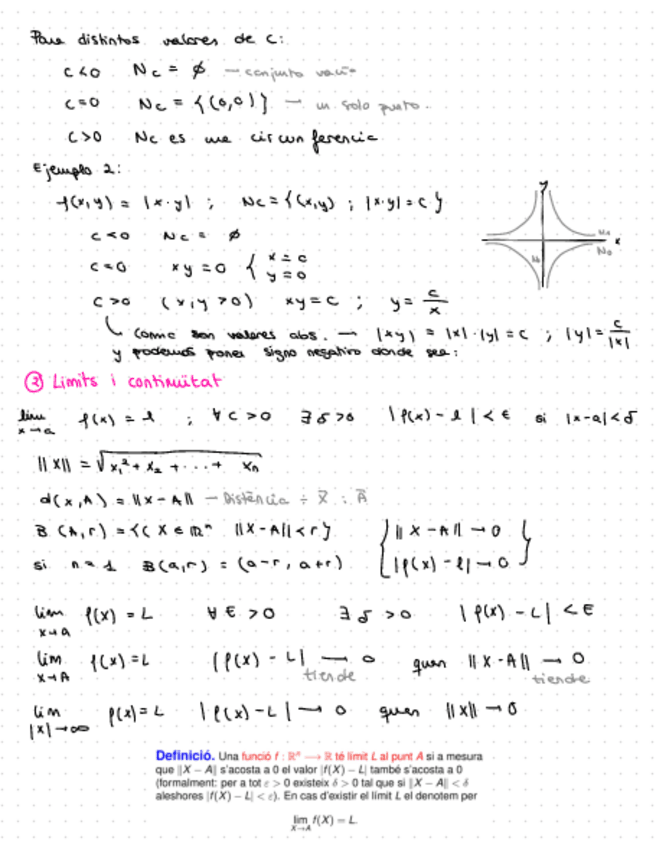 Para distintos valores de c:
c<0 Nc = ∅ — conjunto vacío
c=0 Nc = {(0,0)} — un solo punto.
c>0 Nc es una circunferencia
Ejemplo 2:
f(x,y) = |x·y| ; Nc = {(x,y) ; |x·y| = c}
c<0 Nc = ∅
c=0 xy=0 { x=0
y=0
c>0 (x,y>0) xy=c ; y = c/x
Como son valores abs. → |xy| = |x|·|y| = c ; |y| = c/|x|
y podemos poner signo negativo donde sea:
x
y
N₀
② Límits i continuïtat
lim x→a f(x) = l ; ∀ε>0 ∃δ>0 |f(x) - l| < ε si |x-a|<δ
||X|| = √x₁² + x₂ + ... + xn
d(x,A) = ||X-A|| — Distància ÷ X̄ : Ā
B(A,r) = {( X ∈ ℝⁿ ||X-A|| < r} { ||X-A|| → 0
si n=1 B(a,r) = (a-r, a+r) |f(x) - l| → 0 }
lim x→A f(x) = L ∀ε>0 ∃δ>0 |f(x) - L| < ε
lim x→A f(x) = L |f(x) - L| → 0 quan ||X-A|| → 0
tiende tiende
lim |x|→∞ f(x) = L |f(x) - L| → 0 quan ||x|| → 0
Definició. Una funció f : ℝⁿ ⟶ ℝ té límit L al punt A si a mesura
que ||X − A|| s'acosta a 0 el valor |f(X) − L| també s'acosta a 0
(formalment: per a tot ε > 0 existeix δ > 0 tal que si ||X − A|| < δ
aleshores |f(X) − L| < ε). En cas d'existir el límit L el denotem per
lim X→A f(X) = L.